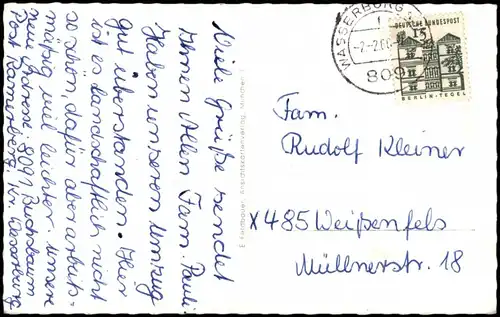 Viele Grüße sendet
Ihnen Allen Fam. Pauli
Haben unseren Umzug
gut überstanden. Hier
ist es landschaftlich nicht
so schön, dafür aber arbeits-
mäßig viel leichter. Unsere
neue Adresse: 8091 Buchsbaum
Post Ramerberg, Kr. Wasserburg
WASSERBURG
-2.-2.66
809
DEUTSCHE BUNDESPOST
15
BERLIN-TEGEL
Fam.
Rudolf Kleiner
X 485 Weißenfels
Müllnerstr. 18